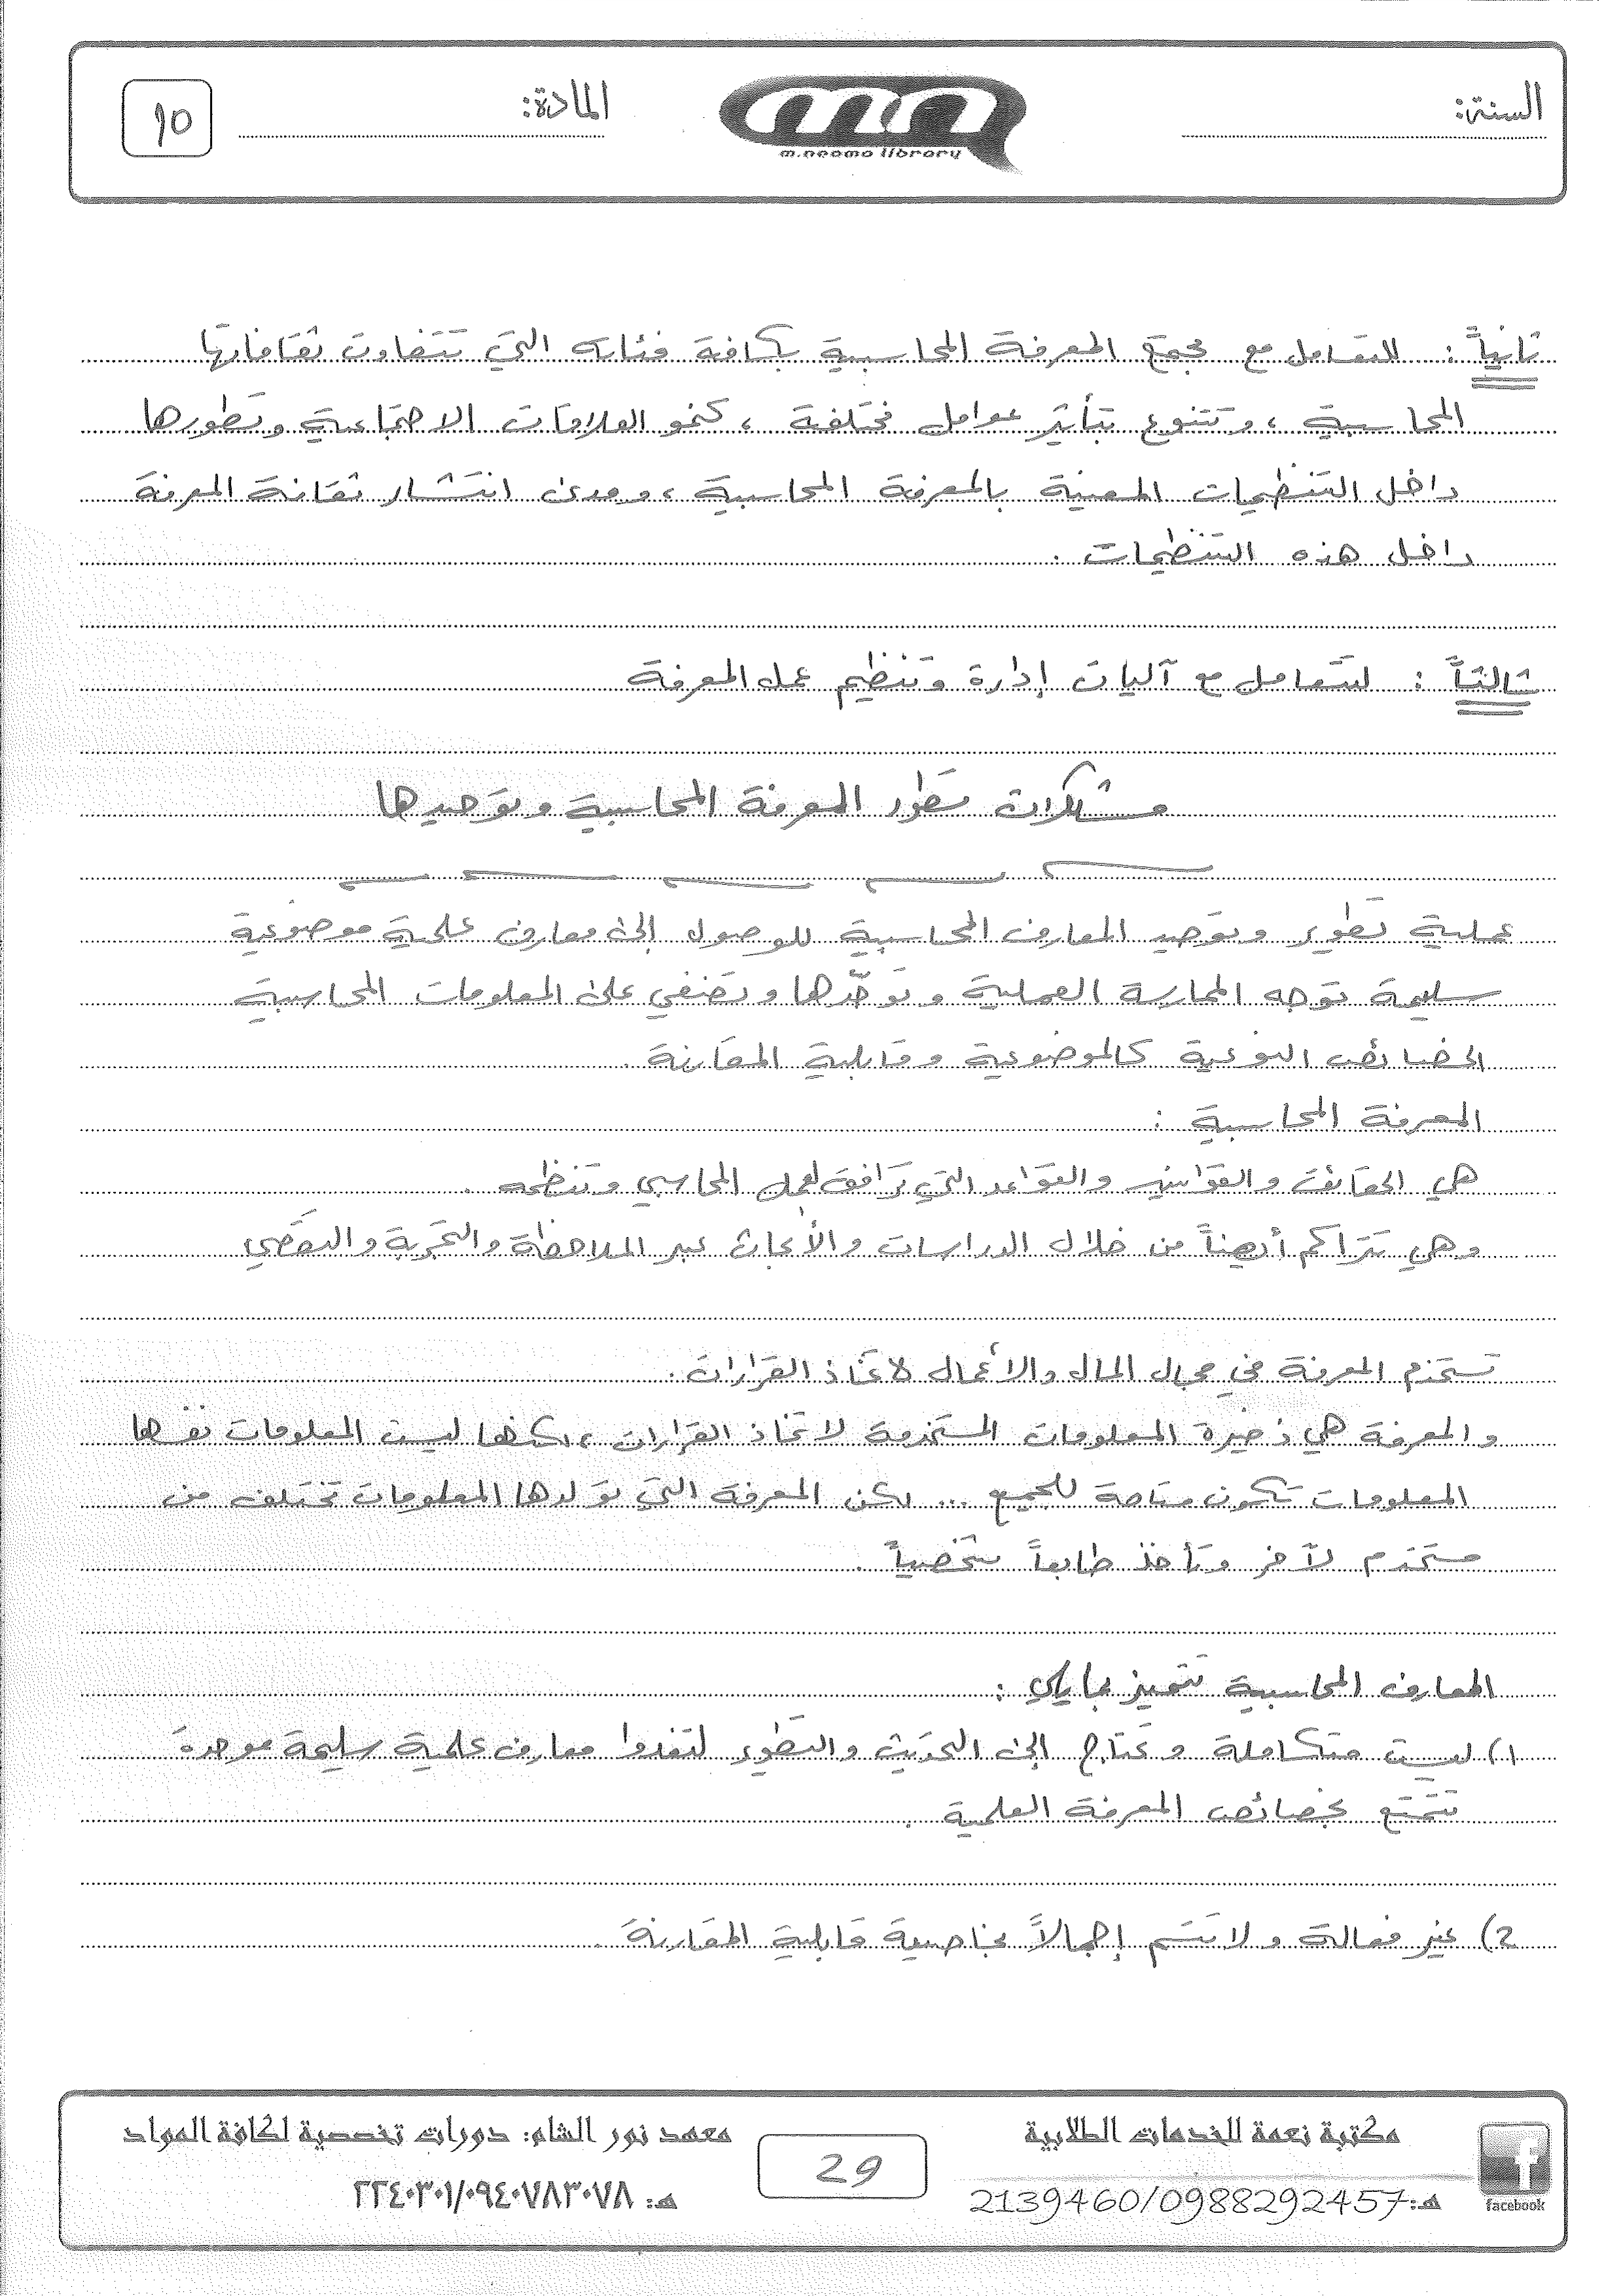 السنة:
m.neama library
المادة:
١٥
ثانياً : للتعامل مع مجتمع المعرفة المحاسبية بكافة فئاته التي تتفاوت ثقافاتها
المحاسبية ، وتتنوع بتأثير عوامل مختلفة ، كنمو العلاقات الاجتماعية وتطورها
داخل التنظيمات المعنية بالمعرفة المحاسبية ، ومدى انتشار ثقافة المعرفة
داخل هذه التنظيمات .
ثالثاً : لتتعامل مع آليات إدارة وتنظيم عمل المعرفة
مشكلات تطور المعرفة المحاسبية وتوحيدها
عملية تطوير وتوحيد المعارف المحاسبية للوصول إلى معارف علمية موضوعية
سليمة توجه الممارسة العملية وتوحّدها وتضفي على المعلومات المحاسبية
الخصائص النوعية كالموضوعية وقابلية المقارنة .
المعرفة المحاسبية :
هي الحقائق والقوانين والقواعد التي ترافق العمل المحاسبي وتنظمه .
وهي تتراكم أيضاً من خلال الدراسات والأبحاث عبر الملاحظة والتجربة والتقصي
تستخدم المعرفة في مجال المال والأعمال لاتخاذ القرارات .
والمعرفة هي ذخيرة المعلومات المستخدمة لاتخاذ القرارات ، لكنها ليست المعلومات نفسها
المعلومات تكون متاحة للجميع ... لكن المعرفة التي تولدها المعلومات تختلف من
مستخدم لآخر وتأخذ طابعاً شخصياً .
المعارف المحاسبية تتميز بما يلي :
1) ليست متكاملة وتحتاج إلى التحديث والتطوير لتغدوا معارف علمية سليمة موحدة
تتمتع بخصائص المعرفة العلمية .
2) غير فعالة ولا تتسم إجمالاً بخاصية قابلية المقارنة .
facebook
مكتبة نعمة للخدمات الطلابية
هـ:2139460/0988292457
29
معهد نور الشام: دورات تخصصية لكافة المواد
هـ: ٢٢٤٠٣٠١/٠٩٤٠٧٨٣٠٧٨